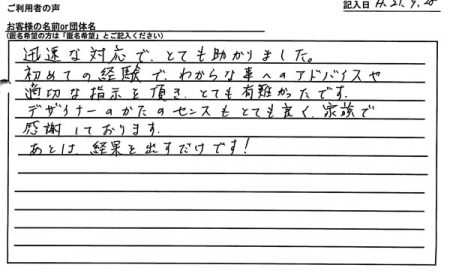 ご利用者の声
記入日 H.21.9.28
お客様の名前or団体名
(匿名希望の方は「匿名希望」とご記入ください)
迅速な対応で、とても助かりました。
初めての経験で、わからな事へのアドバイスや
適切な指示を頂き、とても有難かったです。
デザイナーのかたのセンスもとても良く、家族で
感謝しております。
あとは、結果を出すだけです!